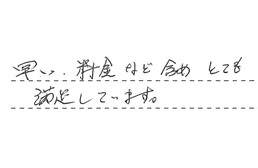 早い、料金など含めとても
満足しています。